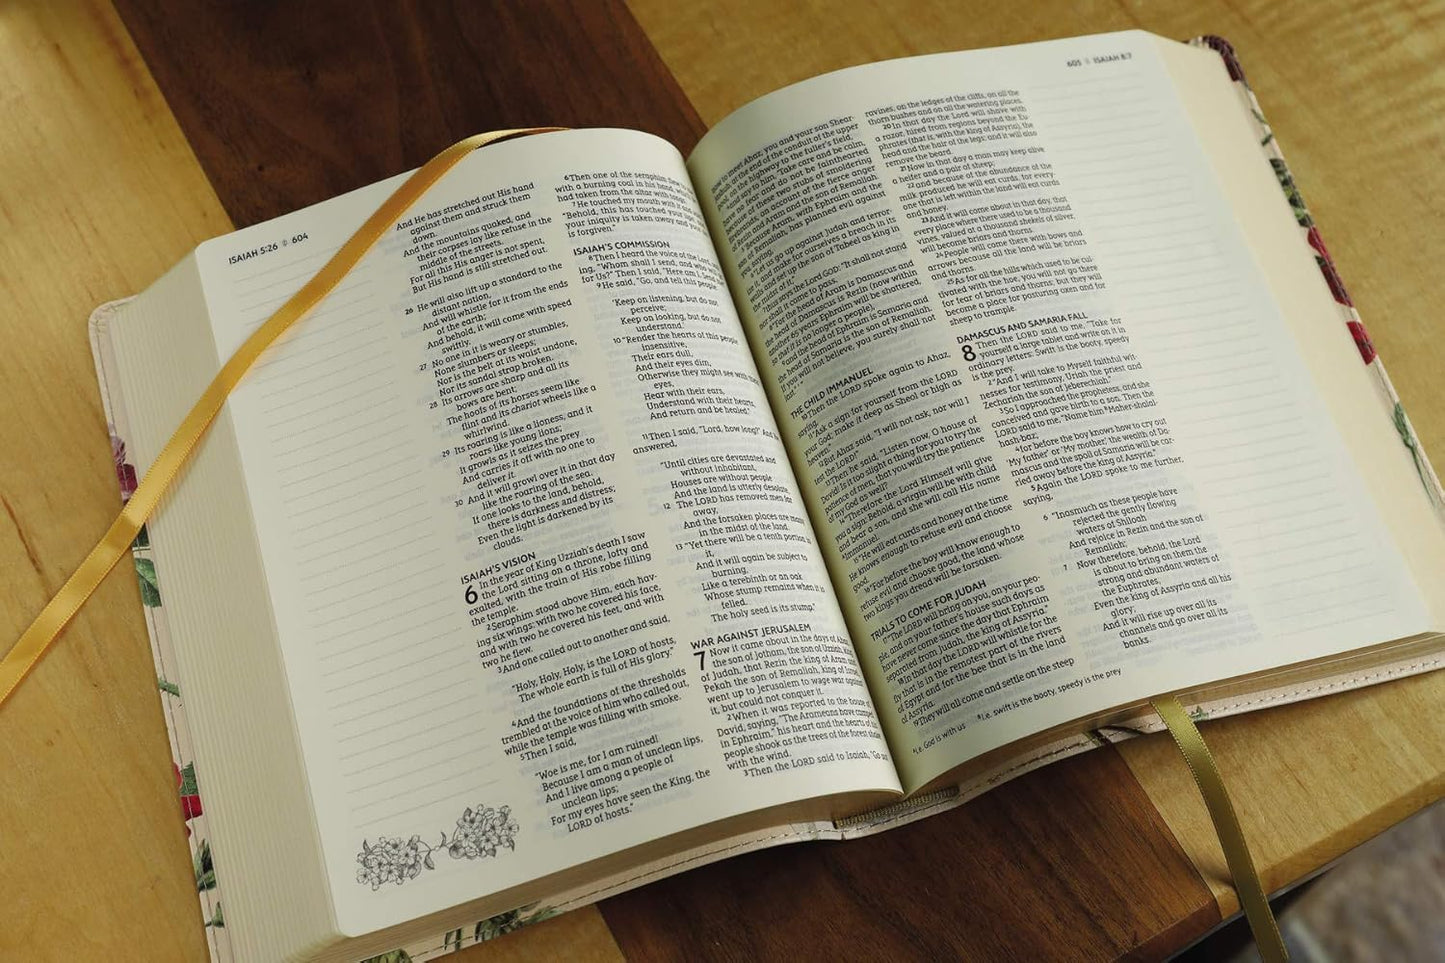 ISAIAH 5:26 604
And He has stretched out His hand
against them and struck them
down.
And the mountains quaked, and
their corpses lay like refuse in the
middle of the streets.
For all this His anger is not spent,
But His hand is still stretched out.
26 He will also lift up a standard to the
distant nation,
And will whistle for it from the ends
of the earth;
And behold, it will come with speed
swiftly.
27 No one in it is weary or stumbles,
None slumbers or sleeps;
Nor is the belt at its waist undone,
Nor its sandal strap broken.
28 Its arrows are sharp and all its
bows are bent;
The hoofs of its horses seem like
flint and its chariot wheels like a
whirlwind.
29 Its roaring is like a lioness, and it
roars like young lions;
It growls as it seizes the prey
And carries it off with no one to
deliver it.
30 And it will growl over it in that day
like the roaring of the sea.
If one looks to the land, behold,
there is darkness and distress;
Even the light is darkened by its
clouds.
ISAIAH'S VISION
6 In the year of King Uzziah's death I saw
the Lord sitting on a throne, lofty and
exalted, with the train of His robe filling
the temple.
2 Seraphim stood above Him, each hav-
ing six wings: with two he covered his face,
and with two he covered his feet, and with
two he flew.
3 And one called out to another and said,
"Holy, Holy, Holy, is the LORD of hosts,
The whole earth is full of His glory."
4 And the foundations of the thresholds
trembled at the voice of him who called out,
while the temple was filling with smoke.
5 Then I said,
"Woe is me, for I am ruined!
Because I am a man of unclean lips,
And I live among a people of
unclean lips;
For my eyes have seen the King, the
LORD of hosts."
6 Then one of the seraphim flew to
with a burning coal in his hand, which
had taken from the altar with tongs.
7 He touched my mouth with it and
"Behold, this has touched your lips;
your iniquity is taken away and your
is forgiven."
ISAIAH'S COMMISSION
8 Then I heard the voice of the Lord,
ing, "Whom shall I send, and who will
for Us?" Then I said, "Here am I. Send
9 He said, "Go, and tell this people:
'Keep on listening, but do not
perceive;
Keep on looking, but do not
understand.'
10 "Render the hearts of this people
insensitive,
Their ears dull,
And their eyes dim,
Otherwise they might see with their
eyes,
Hear with their ears,
Understand with their hearts,
And return and be healed."
11 Then I said, "Lord, how long?" And He
answered,
"Until cities are devastated and
without inhabitant,
Houses are without people
And the land is utterly desolate,
12 The LORD has removed men far
away,
And the forsaken places are many
in the midst of the land.
13 "Yet there will be a tenth portion in
it,
And it will again be subject to
burning,
Like a terebinth or an oak
Whose stump remains when it is
felled.
The holy seed is its stump."
WAR AGAINST JERUSALEM
7 Now it came about in the days of Ahaz,
the son of Jotham, the son of Uzziah, king
of Judah, that Rezin the king of Aram and
Pekah the son of Remaliah, king of Israel,
went up to Jerusalem to wage war against
it, but could not conquer it.
2 When it was reported to the house of
David, saying, "The Arameans have camped
in Ephraim," his heart and the hearts of his
people shook as the trees of the forest shake
with the wind.
3 Then the LORD said to Isaiah, "Go out
605 ISAIAH 8:7
now to meet Ahaz, you and your son Shear-
at the end of the conduit of the upper
pool, on the highway to the fuller's field,
and say to him, 'Take care and be calm,
have no fear and do not be fainthearted
because of these two stubs of smoldering
firebrands, on account of the fierce anger
of Rezin and Aram and the son of Remaliah.
5 'Because Aram, with Ephraim and the
son of Remaliah, has planned evil against
you, saying,
6 "Let us go up against Judah and terror-
ize it, and make for ourselves a breach in its
walls and set up the son of Tabeel as king in
the midst of it,"
7 thus says the Lord GOD: "It shall not stand
nor shall it come to pass.
8 "For the head of Aram is Damascus and
the head of Damascus is Rezin (now within
another 65 years Ephraim will be shattered,
so that it is no longer a people),
9 and the head of Ephraim is Samaria and
the head of Samaria is the son of Remaliah.
If you will not believe, you surely shall not
last."'"
THE CHILD IMMANUEL
10 Then the LORD spoke again to Ahaz,
saying,
11 "Ask a sign for yourself from the LORD
your God; make it deep as Sheol or high as
heaven."
12 But Ahaz said, "I will not ask, nor will I
test the LORD!"
13 Then he said, "Listen now, O house of
David! Is it too slight a thing for you to try the
patience of men, that you will try the patience
of my God as well?
14 "Therefore the Lord Himself will give
you a sign: Behold, a virgin will be with child
and bear a son, and she will call His name
Immanuel.
15 "He will eat curds and honey at the time
He knows enough to refuse evil and choose
good.
16 "For before the boy will know enough to
refuse evil and choose good, the land whose
two kings you dread will be forsaken.
TRIALS TO COME FOR JUDAH
17 "The LORD will bring on you, on your peo-
ple, and on your father's house such days as
have never come since the day that Ephraim
separated from Judah, the king of Assyria."
18 In that day the LORD will whistle for the
fly that is in the remotest part of the rivers
of Egypt and for the bee that is in the land
of Assyria.
19 They will all come and settle on the steep
ravines, on the ledges of the cliffs, on all the
thorn bushes and on all the watering places.
20 In that day the Lord will shave with
a razor, hired from regions beyond the Eu-
phrates (that is, with the king of Assyria), the
head and the hair of the legs; and it will also
remove the beard.
21 Now in that day a man may keep alive
a heifer and a pair of sheep;
22 and because of the abundance of the
milk produced he will eat curds, for every
one that is left within the land will eat curds
and honey.
23 And it will come about in that day, that
every place where there used to be a thousand
vines, valued at a thousand shekels of silver,
will become briars and thorns.
24 People will come there with bows and
arrows because all the land will be briars
and thorns.
25 As for all the hills which used to be cul-
tivated with the hoe, you will not go there
for fear of briars and thorns; but they will
become a place for pasturing oxen and for
sheep to trample.
DAMASCUS AND SAMARIA FALL
8 Then the LORD said to me, "Take for
yourself a large tablet and write on it in
ordinary letters: Swift is the booty, speedy
is the prey.
2 "And I will take to Myself faithful wit-
nesses for testimony, Uriah the priest and
Zechariah the son of Jeberechiah."
3 So I approached the prophetess, and she
conceived and gave birth to a son. Then the
LORD said to me, "Name him Maher-shalal-
hash-baz;
4 for before the boy knows how to cry out
'My father' or 'My mother,' the wealth of Da-
mascus and the spoil of Samaria will be car-
ried away before the king of Assyria."
5 Again the LORD spoke to me further,
saying,
6 "Inasmuch as these people have
rejected the gently flowing
waters of Shiloah
And rejoice in Rezin and the son of
Remaliah;
7 "Now therefore, behold, the Lord
is about to bring on them the
strong and abundant waters of
the Euphrates,
Even the king of Assyria and all his
glory;
And it will rise up over all its
channels and go over all its
banks.
I.e. God is with us I.e. swift is the booty, speedy is the prey